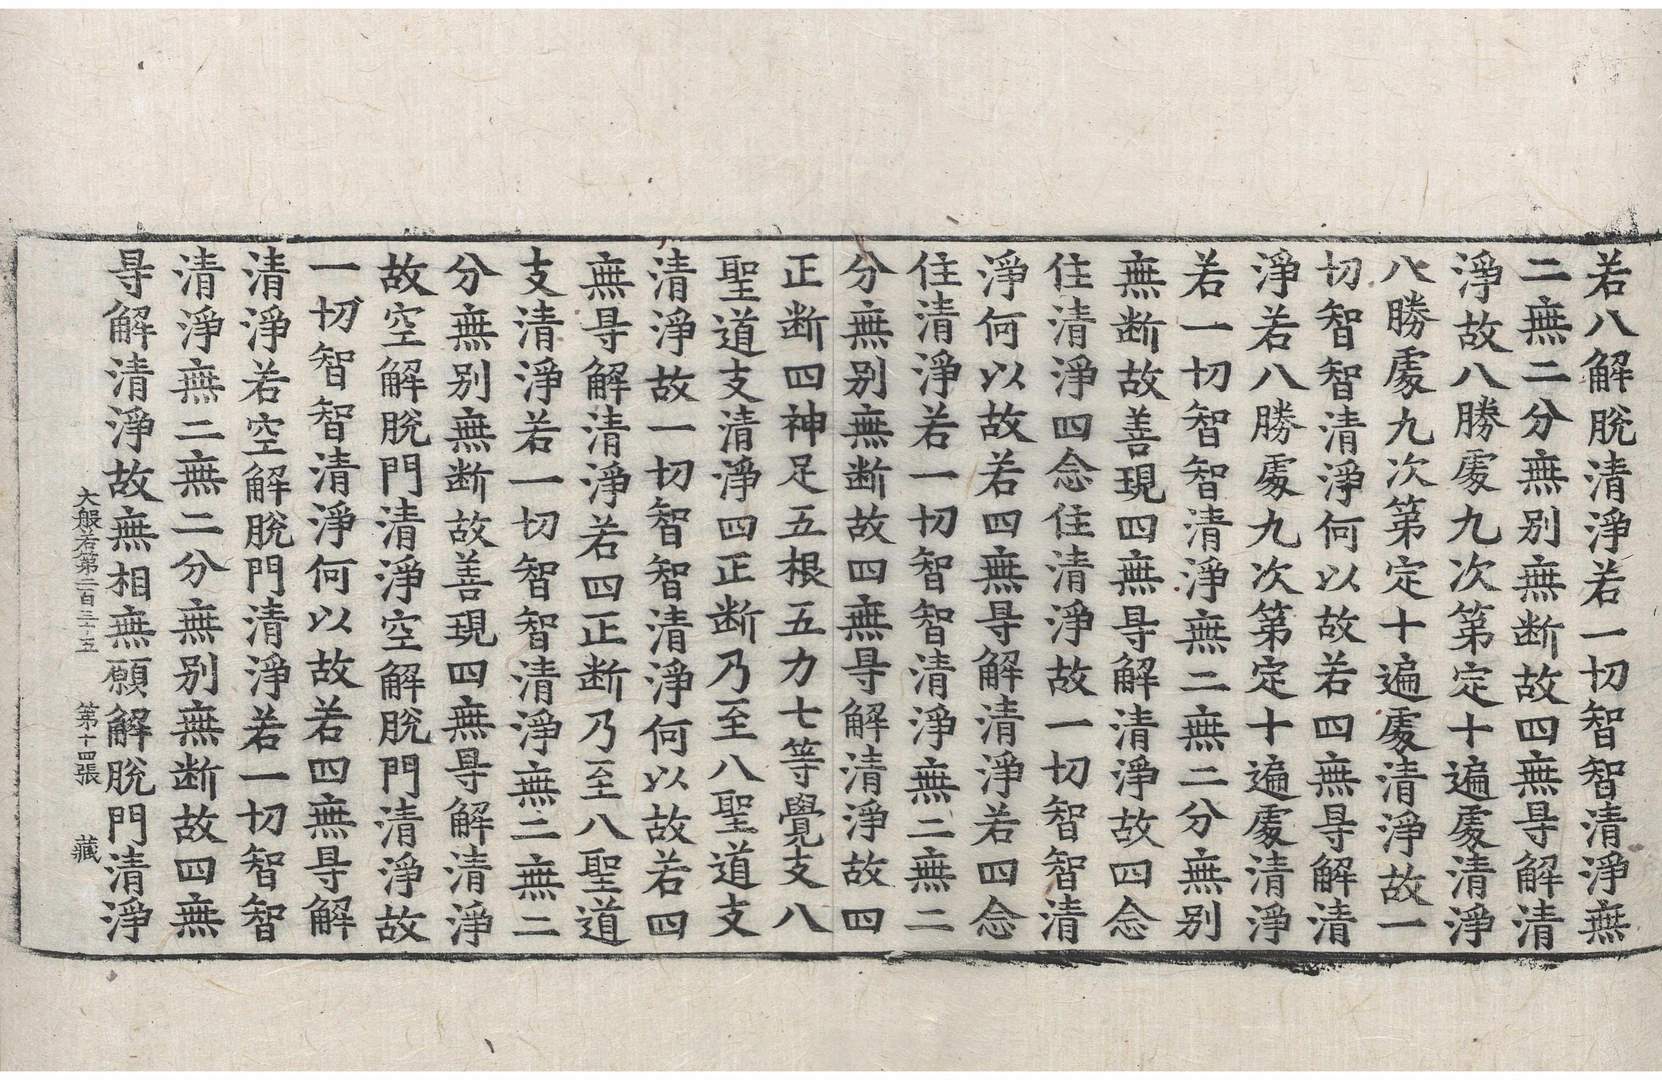 若八解脫清淨若一切智智清淨無
二無二分無別無断故四無㝵解清
淨故八勝處九次第定十遍處清淨
八勝處九次第定十遍處清淨故一
切智智清淨何以故若四無㝵解清
淨若八勝處九次第定十遍處清淨
若一切智智清淨無二無二分無別
無断故善現四無㝵解清淨故四念
住清淨四念住清淨故一切智智清
淨何以故若四無㝵解清淨若四念
住清淨若一切智智清淨無二無二
分無別無断故四無㝵解清淨故四
正断四神足五根五力七等覺支八
聖道支清淨四正断乃至八聖道支
清淨故一切智智清淨何以故若四
無㝵解清淨若四正断乃至八聖道
支清淨若一切智智清淨無二無二
分無別無断故善現四無㝵解清淨
故空解脫門清淨空解脫門清淨故
一切智智清淨何以故若四無㝵解
清淨若空解脫門清淨若一切智智
清淨無二無二分無別無断故四無
㝵解清淨故無相無願解脫門清淨
大般若第二百三十五 第十四張 藏